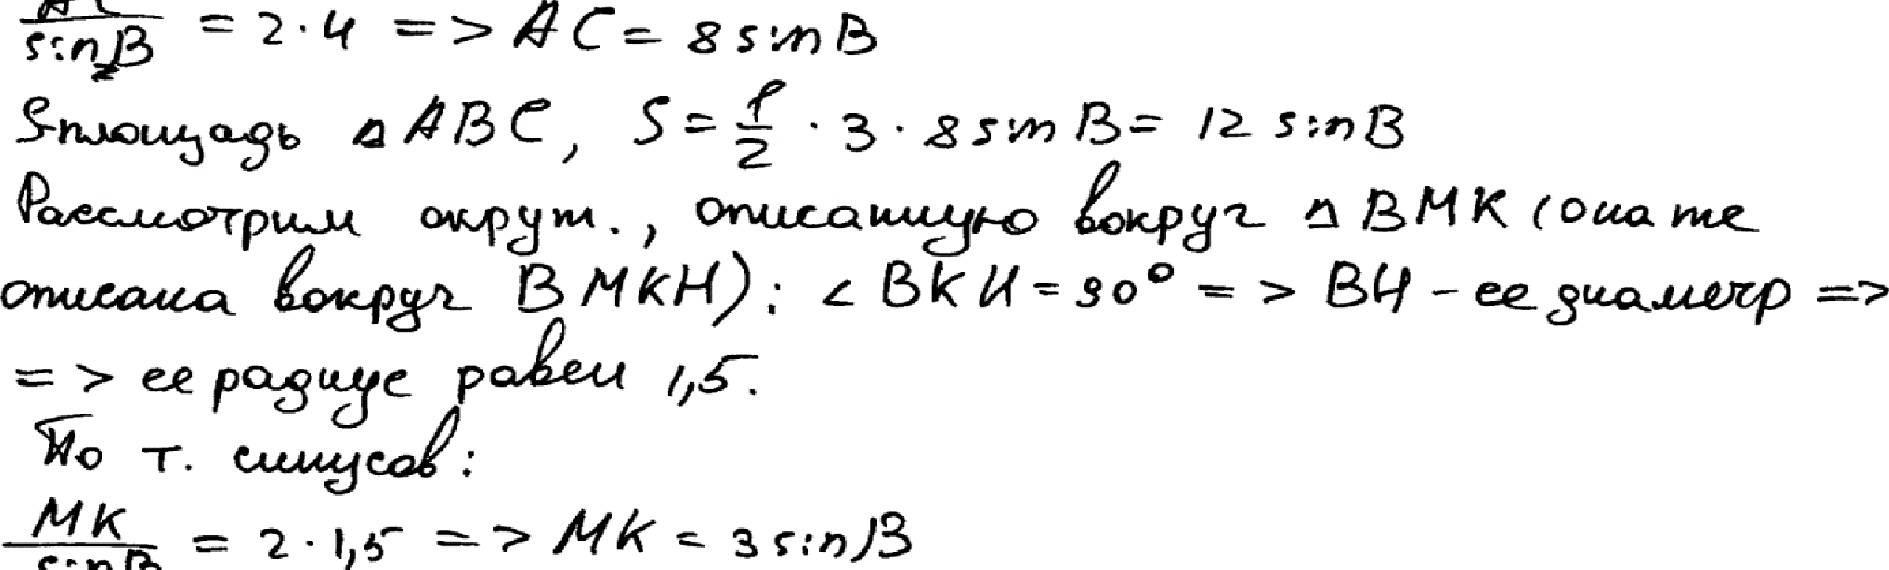 AC/sinB = 2·4 => AC = 8 sinB
S-площадь △ABC, S = 1/2 · 3 · 8 sinB = 12 sinB
Рассмотрим окруж., описанную вокруг △BMK (она же
описана вокруг BMKH): ∠BKH = 90° => BH - ее диаметр =>
=> ее радиус равен 1,5.
По т. синусов:
MK/sinB = 2·1,5 => MK = 3 sinB